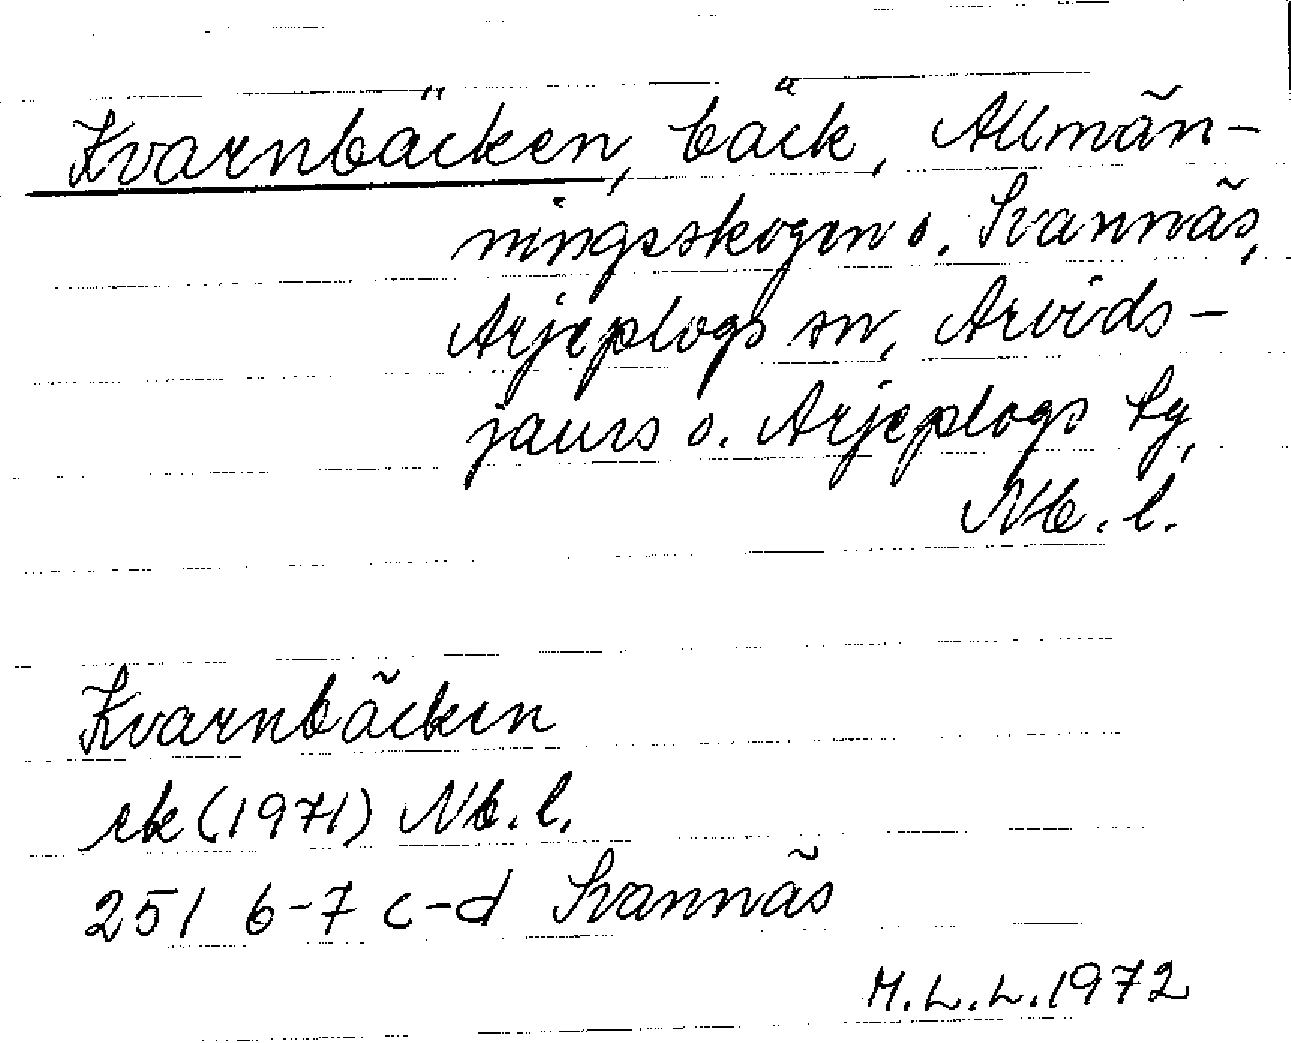 Kvarnbäcken, bäck, Allmän-
ningsskogen o. Svannäs,
Arjeplogs sn, Arvids-
jaurs o. Arjeplogs tg,
Nb. l.
Kvarnbäcken
ek (1971) Nb. l.
25I 6-7 c-d Svannäs
M.L.L. 1972